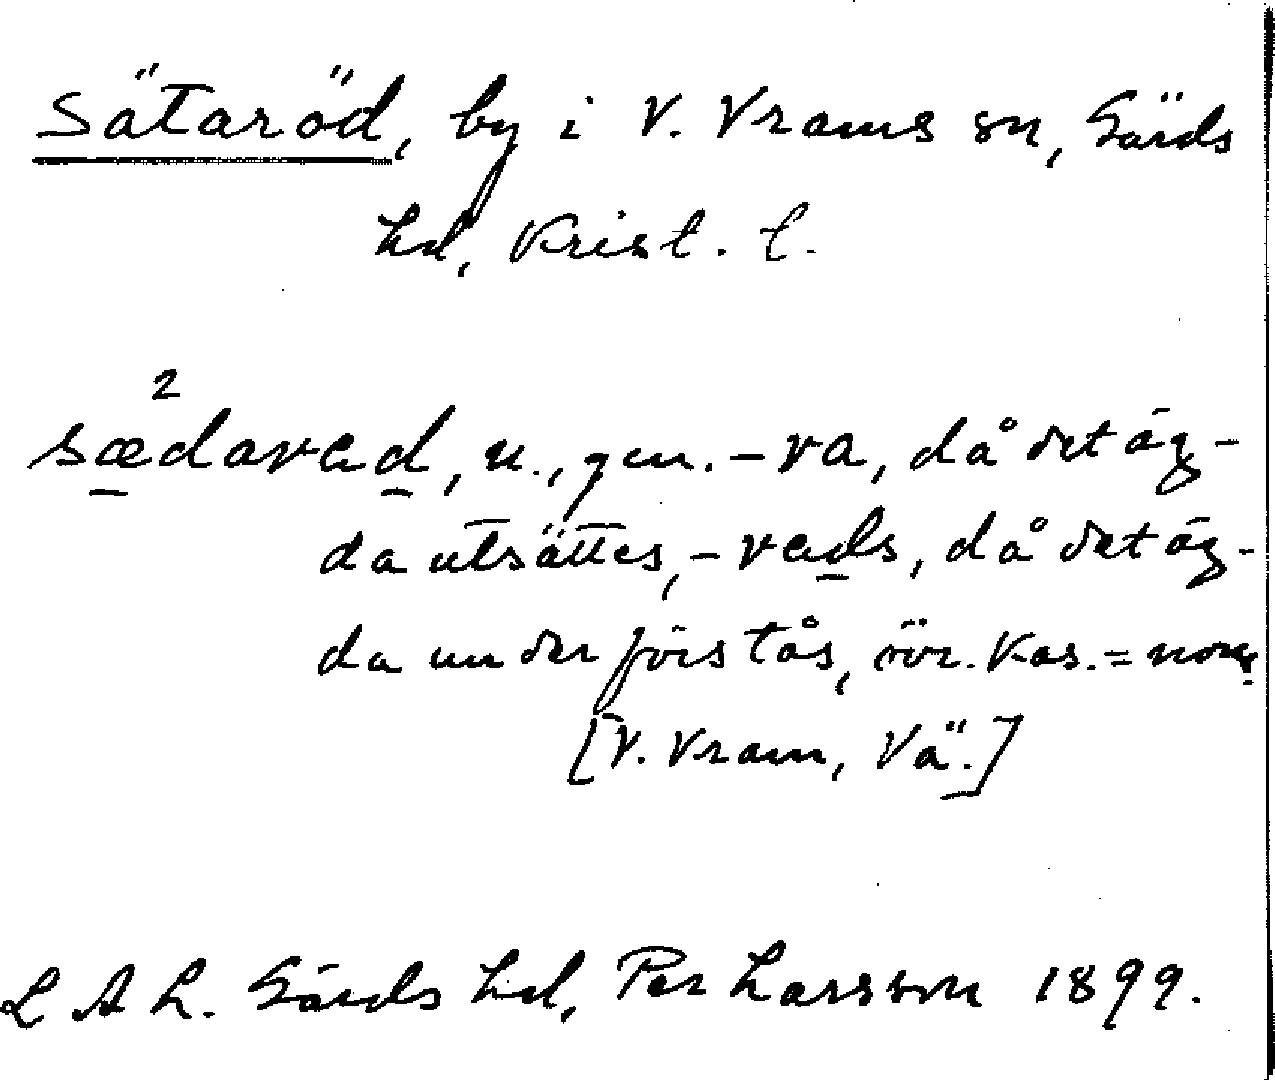 Sätaröd, by i V. Vrams sn, Gärds
hd, Krist. l.
sæ²daræd, n., gen. -ra, då det äg-
da utsättes, -ræds, då det äg-
da underförstås, övr. kas. = nom.
[V. Vram, Vä.]
L A L. Gärds hd, Per Larsson 1899.